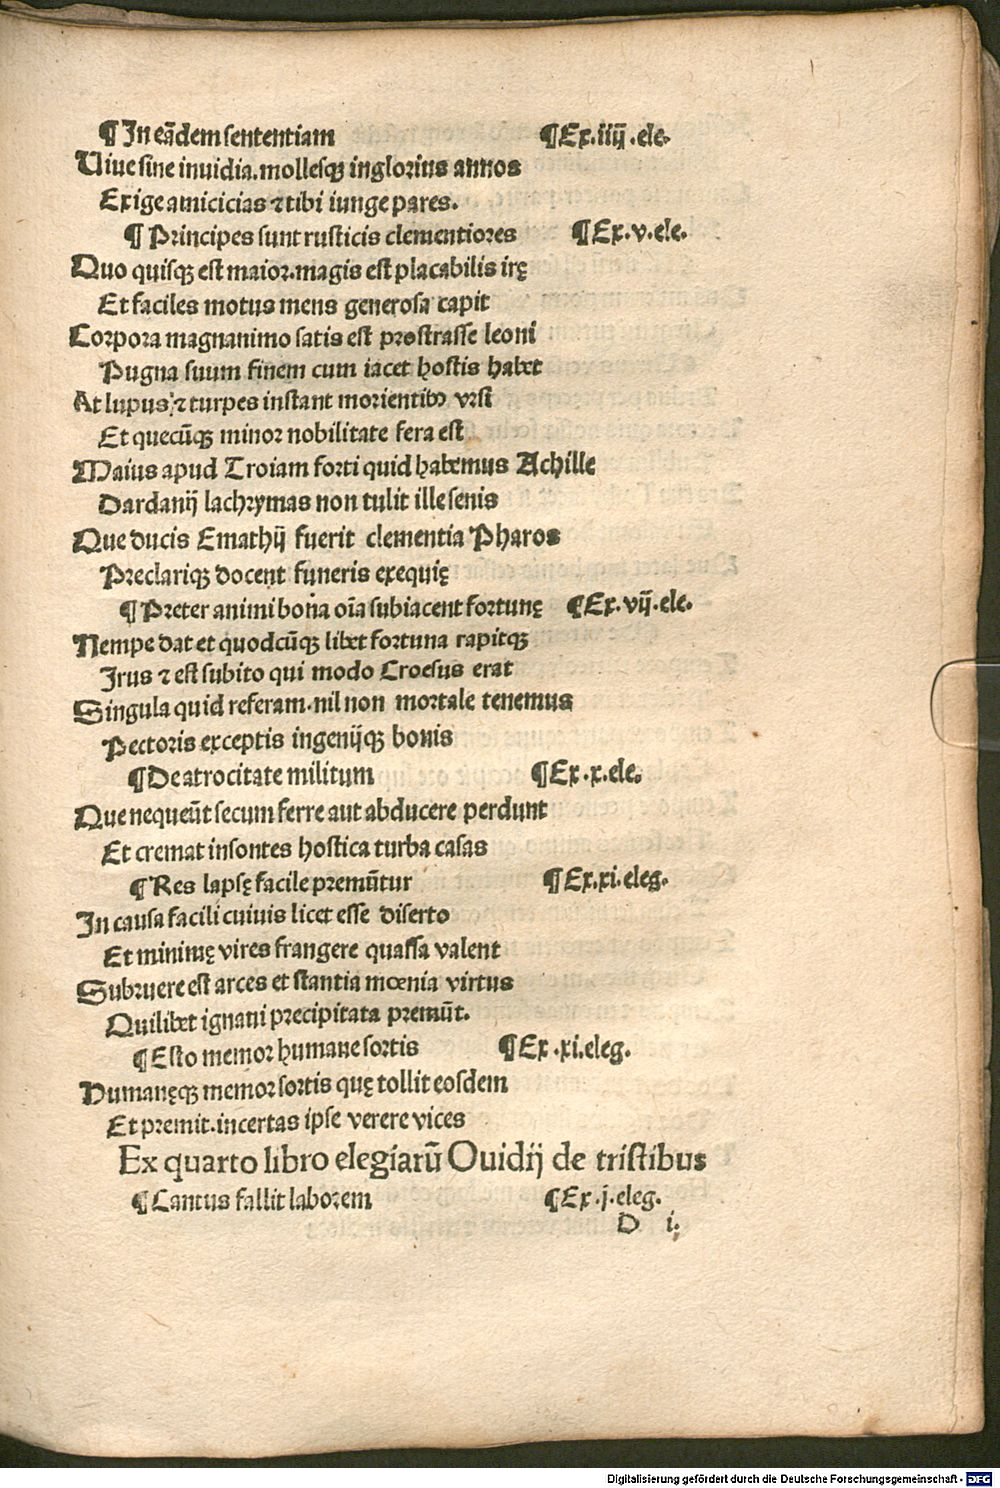 ¶ In eādem sententiam ¶ Ex.iiij.ele.
Uiue sine inuidia.mollesqꝫ inglorius annos
Exige amicicias ⁊ tibi iunge pares.
¶ Principes sunt rusticis clementiores ¶ Ex.v.ele.
Quo quisqꝫ est maior.magis est placabilis irę
Et faciles motus mens generosa capit
Corpora magnanimo satis est prostrasse leoni
Pugna suum finem cum iacet hostis habet
At lupus ⁊ turpes instant morientibꝰ vrsi
Et quecūqꝫ minor nobilitate fera est
Maius apud Troiam forti quid habemus Achille
Dardanij lachrymas non tulit ille senis
Que ducis Emathij fuerit clementia Pharos
Preclariqꝫ docent funeris exequię
¶ Preter animi bona oīa subiacent fortunę ¶ Ex.vij.ele.
Nempe dat et quodcūqꝫ libet fortuna rapitqꝫ
Irus ⁊ est subito qui modo Croesus erat
Singula quid referam.nil non mortale tenemus
Pectoris exceptis ingenijqꝫ bonis
¶ De atrocitate militum ¶ Ex.x.ele.
Que nequeūt secum ferre aut abducere perdunt
Et cremat insontes hostica turba casas
¶ Res lapsę facile premūtur ¶ Ex.xi.eleg.
In causa facili cuiuis licet esse diserto
Et minimę vires frangere quassa valent
Subruere est arces et stantia mœnia virtus
Quilibet ignaui precipitata premūt.
¶ Esto memor humane sortis ¶ Ex.xi.eleg.
Humanęqꝫ memor sortis quę tollit eosdem
Et premit.incertas ipse verere vices
Ex quarto libro elegiarū Ouidij de tristibus
¶ Cantus fallit laborem ¶ Ex.j.eleg.
D i.
Digitalisierung gefördert durch die Deutsche Forschungsgemeinschaft - DFG